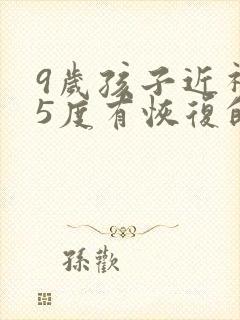 9歲孩子近
5度有恢復
孫歡